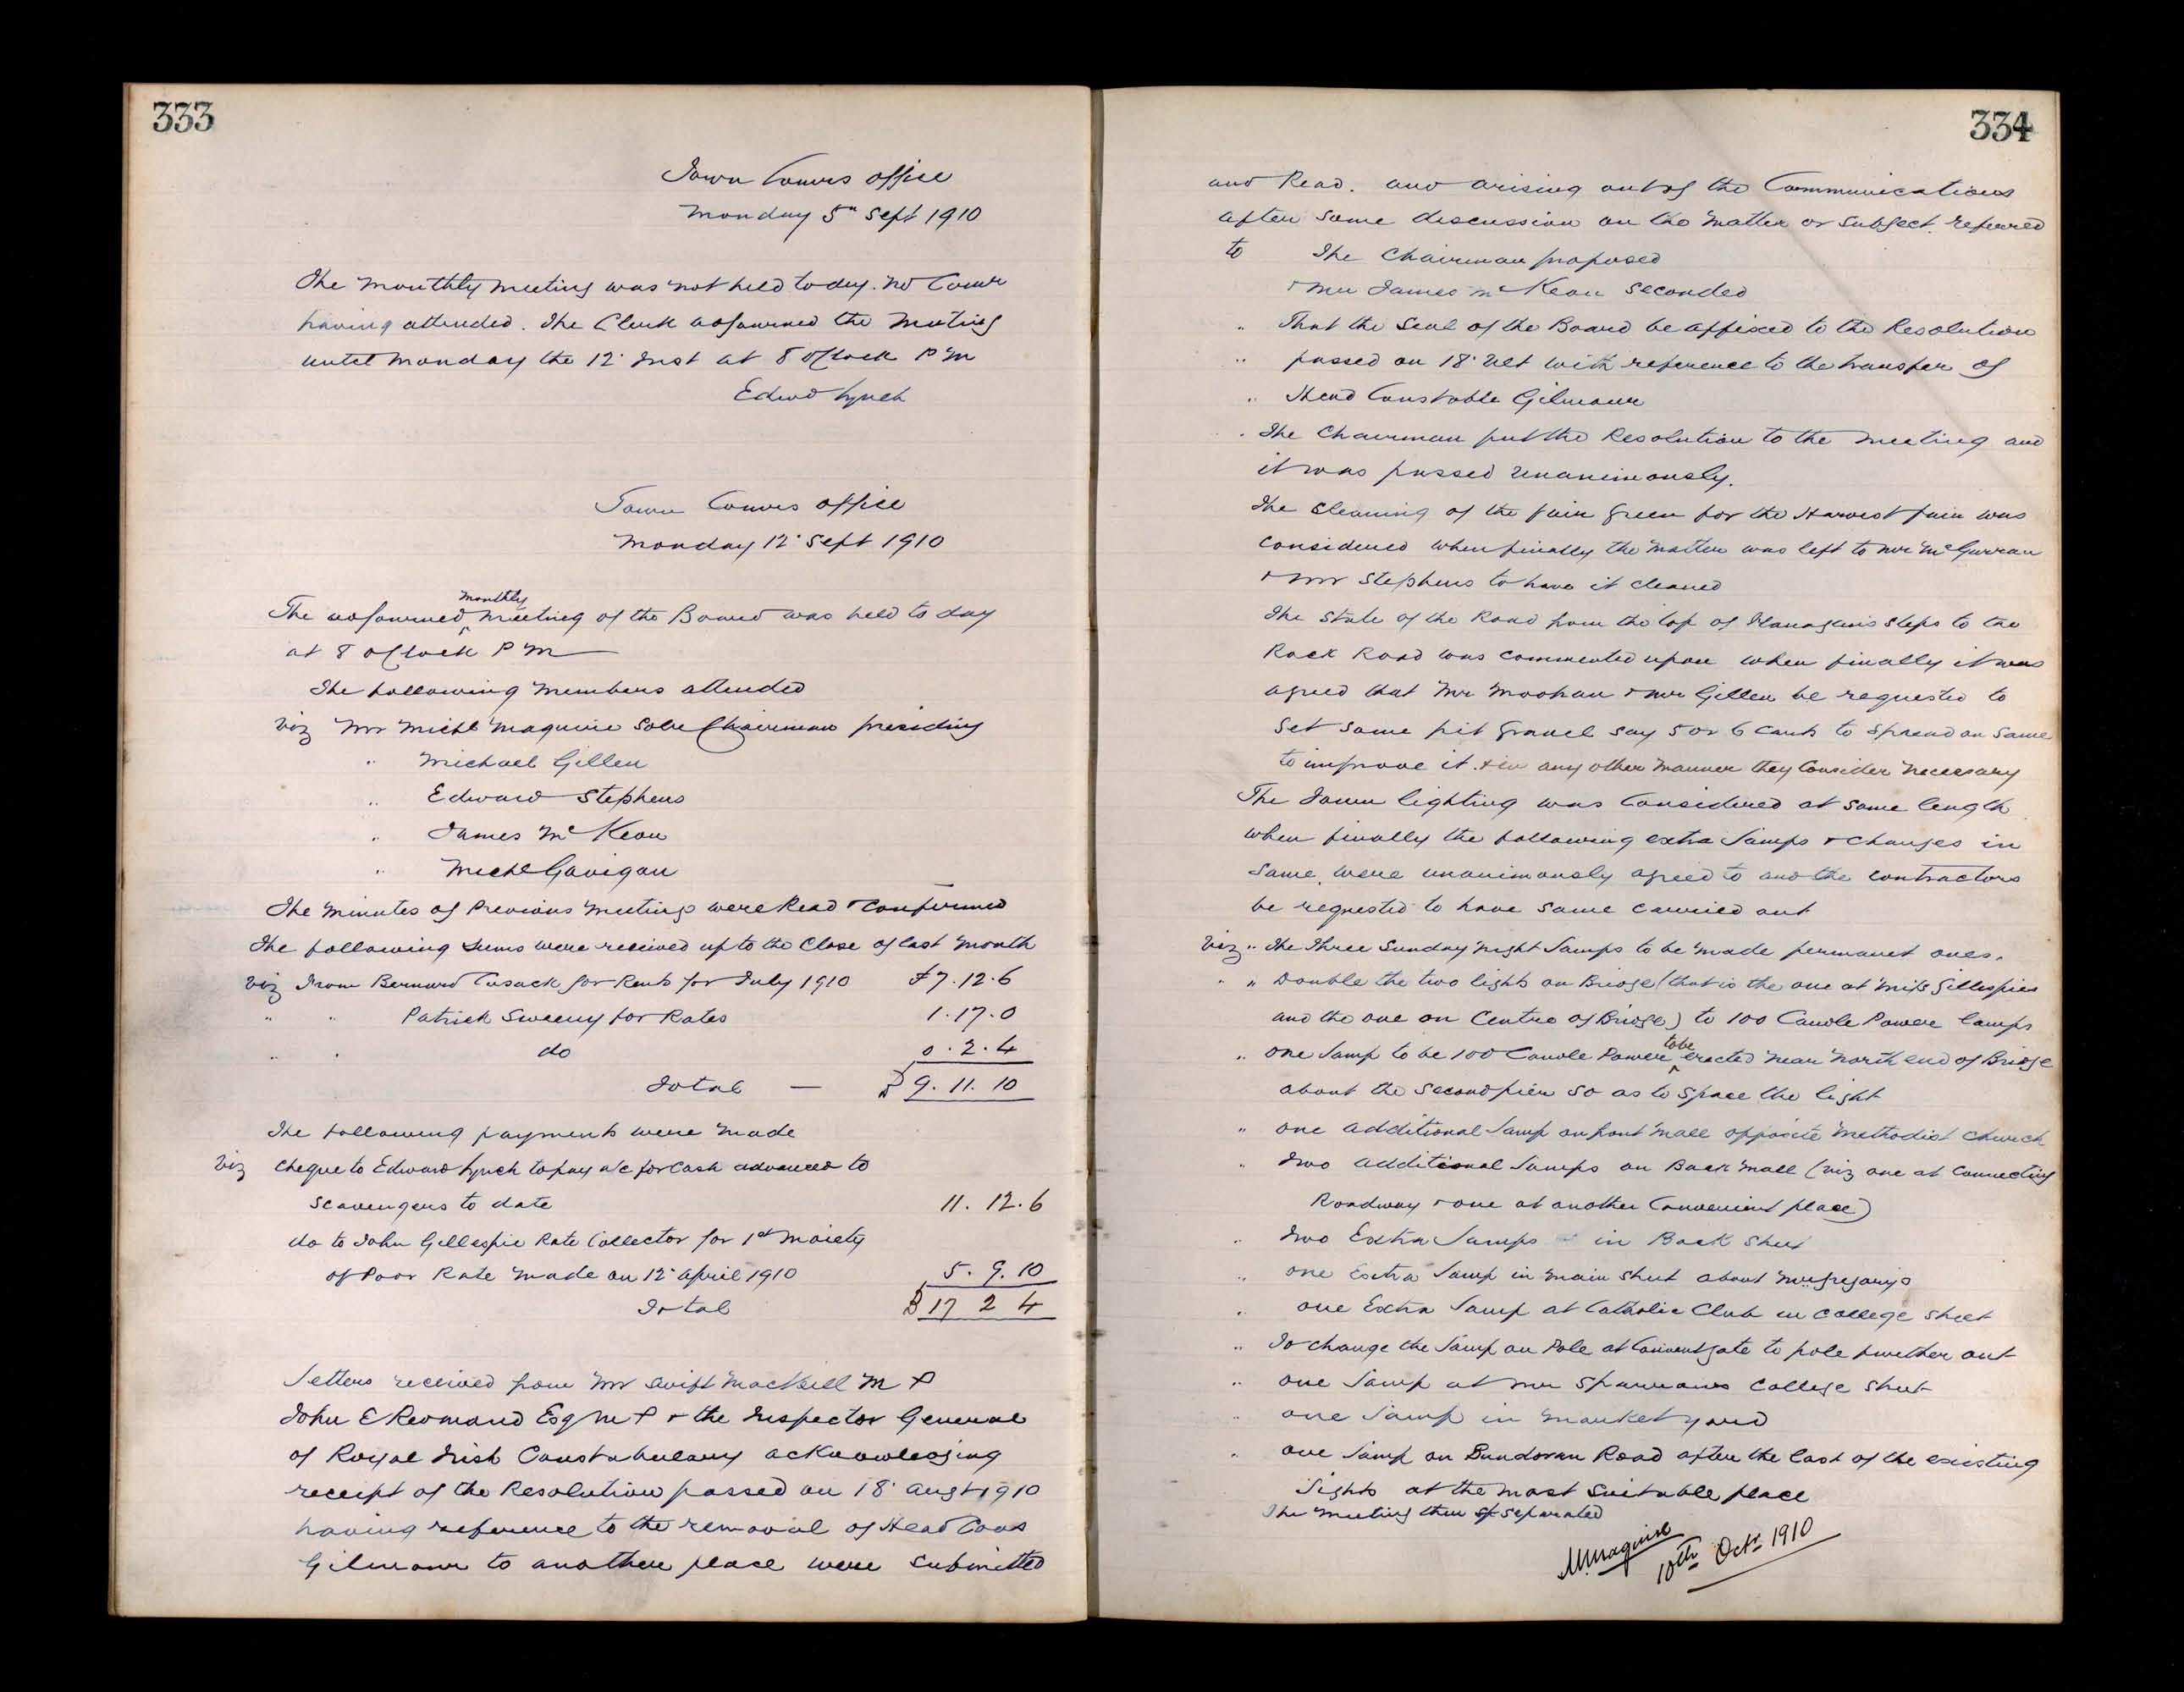 333
Town Comrs office
Monday 5th Sept 1910
The monthly meeting was not held to day. no Comr
having attended. The Clerk adjourned the meeting
until Monday the 12th Inst at 8 O'Clock P M
Edwd Lynch
Town Comrs office
Monday 12th Sept 1910
The adjourned monthly meeting of the Board was held to day
at 8 o'Clock P M
The following members attended
viz Mr Michl Maguire Solr Chairman presiding
" Michael Gillen
" Edward Stephens
" James McKeon
" Michl Gavigan
The minutes of Previous meetings were Read & Confirmed
The following sums were received up to the Close of last month
viz From Bernard Cusack for Rents for July 1910 £7.12.6
" " Patrick Sweeny for Rates 1.17.0
" " do 0.2.4
Total — £ 9.11.10
The following payments were made
viz Cheque to Edward Lynch to pay a/c for Cash advanced to
Scavengers to date 11.12.6
do to John Gillespie Rate Collector for 1st Moiety
of Poor Rate made on 12th April 1910 5.9.10
Total £ 17 2 4
Letters received from Mr Swift MacNeill M P
John E Redmond Esq M P & the Inspector General
of Royal Irish Constabulary acknowledging
receipt of the Resolution passed on 18th Augt 1910
having reference to the removal of Head Cons
Gilmour to another place were submitted
334
and Read. and arising out of the Communications
after some discussion on the matter or subject referred
to The Chairman proposed
& Mr James McKeon Seconded
" That the Seal of the Board be affixed to the Resolution
" passed on 18th Ult with reference to the transfer of
" Head Constable Gilmour
" The Chairman put the Resolution to the meeting and
it was passed unanimously.
The cleaning of the fair green for the Harvest fair was
Considered when finally the matter was left to Mr McGurran
& Mr Stephens to have it cleaned
The State of the Road from the top of Flanagans Steps to the
Rock Road was commented upon when finally it was
agreed that Mr Moohan & Mr Gillen be requested to
Get some pit gravel say 5 or 6 Carts to spread on same
to improve it. & in any other manner they Consider necessary
The Town lighting was Considered at some length
when finally the following extra Lamps & changes in
same were unanimously agreed to and the contractors
be requested to have same carried out
viz " The Three Sunday night Lamps to be made permanet ones.
" " Double the two lights on Bridge (that is the one at Miss Gillespies
and the one on Centre of Bridge) to 100 Candle Power lamps
" one Lamp to be 100 Candle Power to be erected near North end of Bridge
about the second pier so as to space the light
" one additional Lamp on front Mall opposite Methodist Church
" Two additional Lamps on Back Mall (viz one at Connecting
Roadway & one at another Convenient place)
" Two Extra Lamps in Back Street
" one Extra Lamp in Main Street about McGregory's
" one Extra Lamp at Catholic Club in College Street
" To change the Lamp on Pole at Convent gate to pole further out
" one Lamp at Mr Sparrows College Street
" one Lamp in Market yard
" one Lamp on Bundoran Road after the last of the existing
Lights at the most suitable place
The meeting then separated
M Maguire
10th Octr 1910